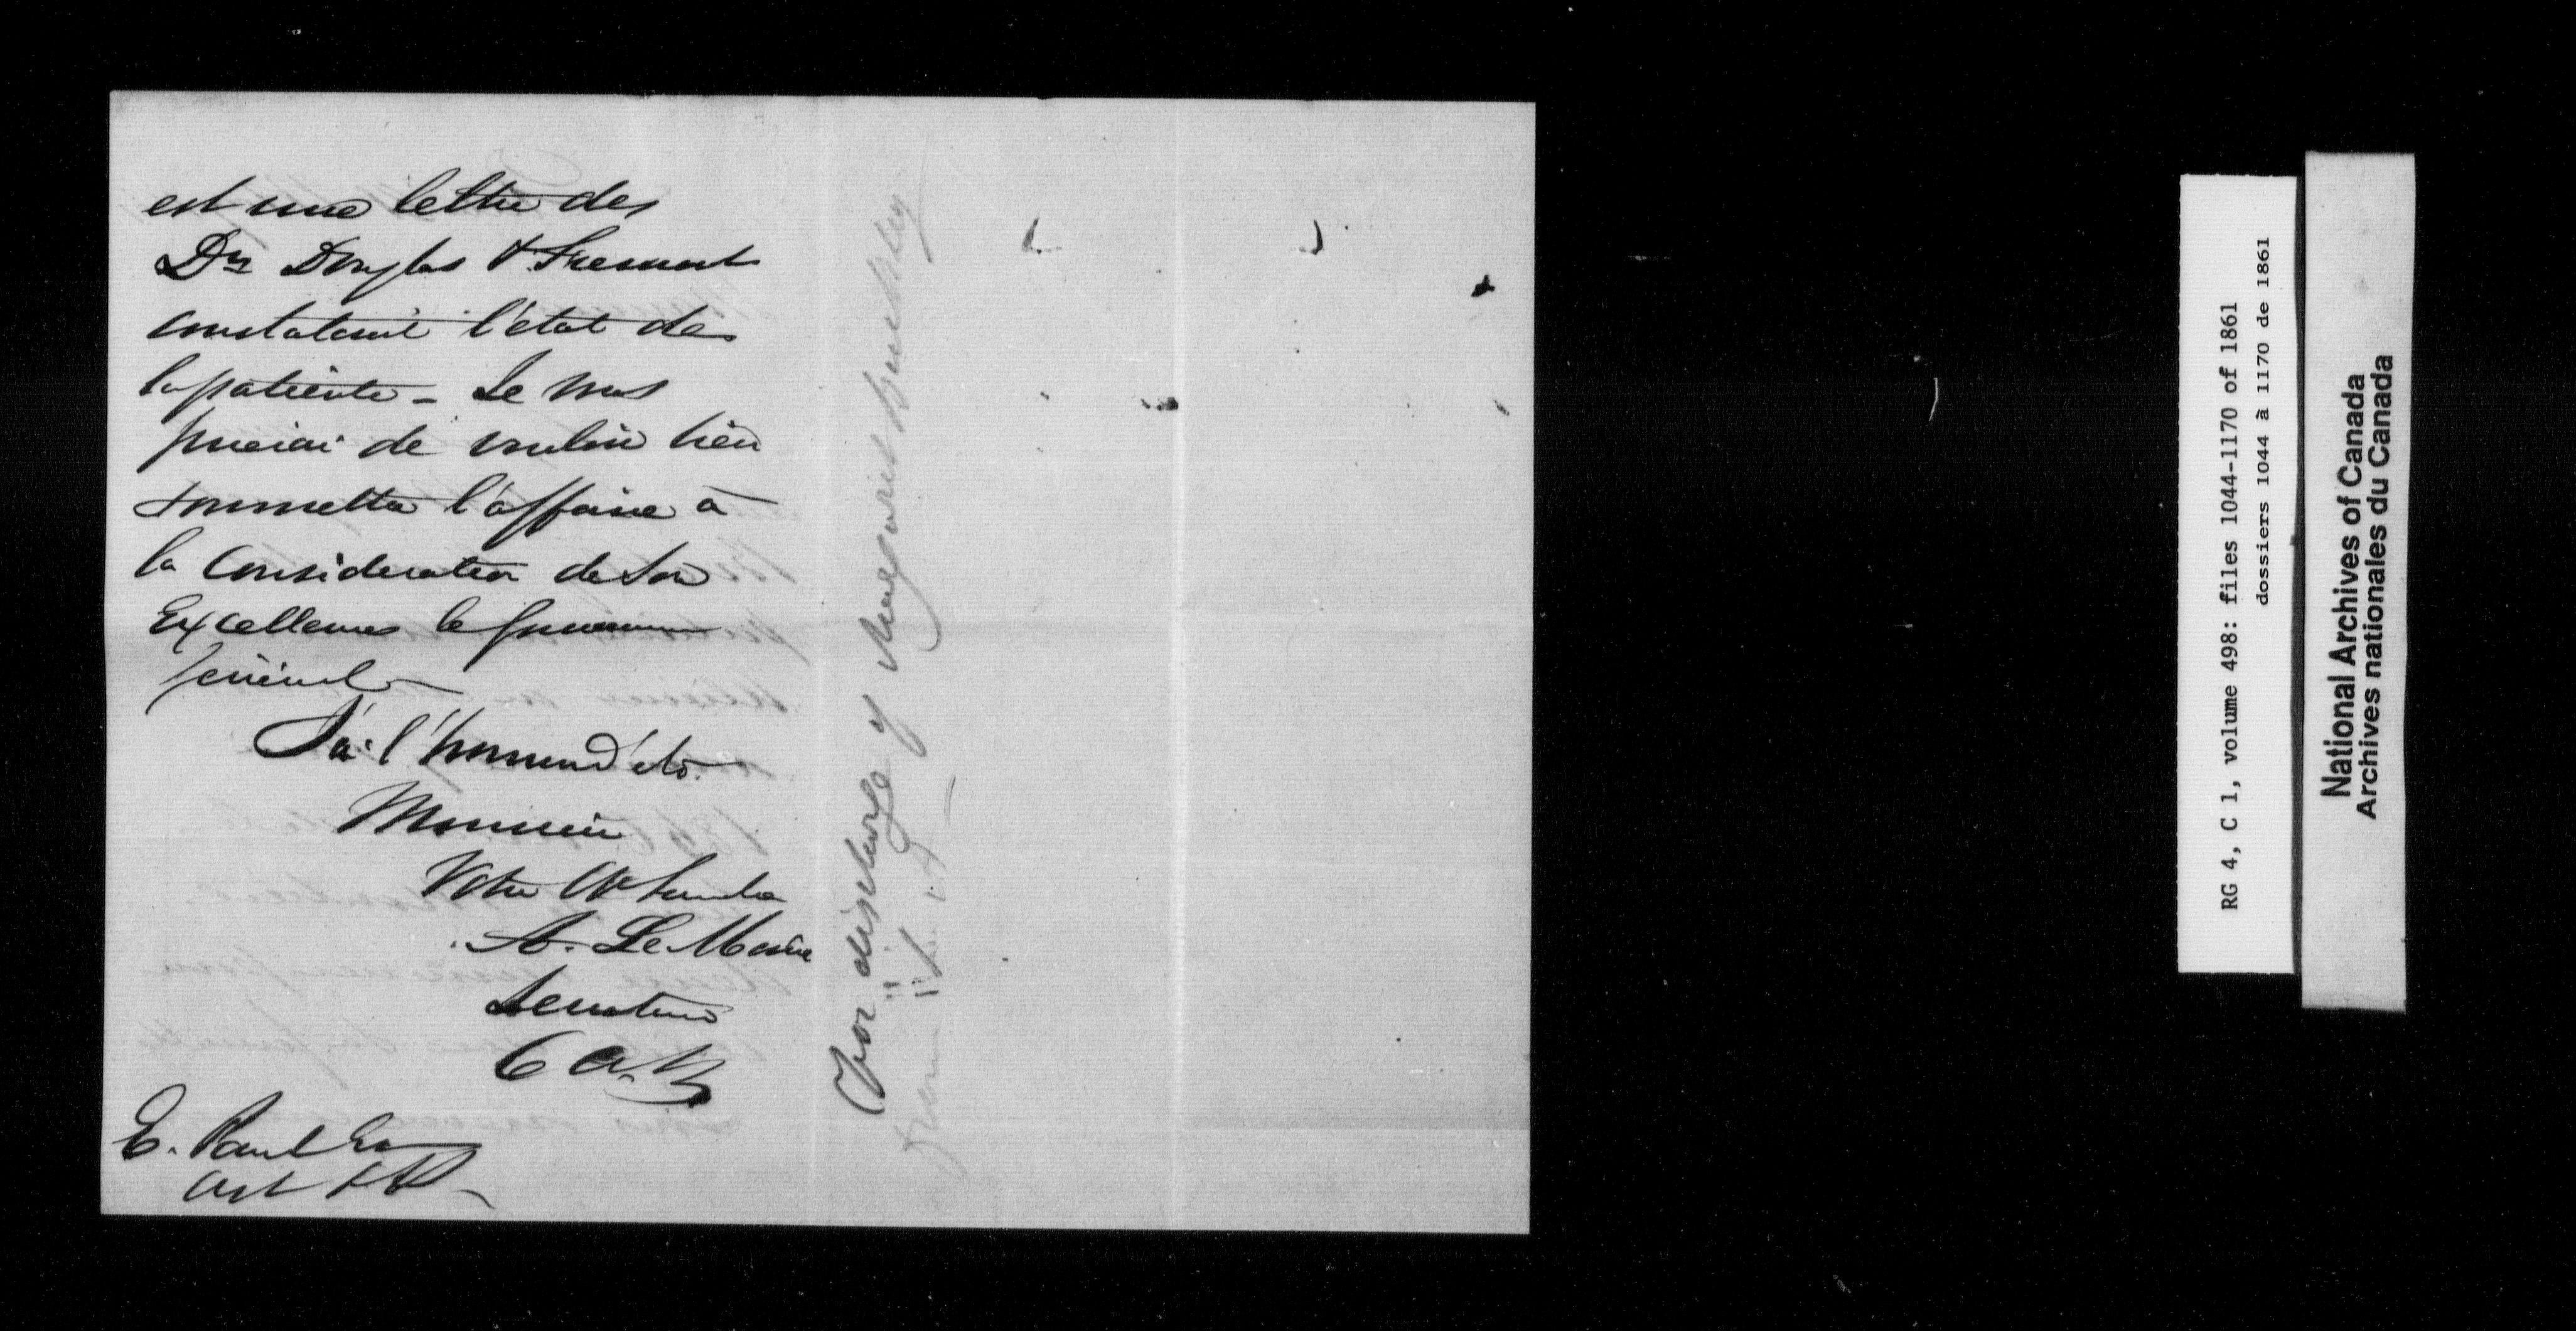 est une lettre des
Drs Douglas & Fremont
constatant l'état de
la patiente - Je vous
prierai de vouloir bien
soumettre l'affaire à
la Consideration de Son
Excellence le Gouverneur
Général
J'ai l'honneur d'etr.
Monsieur
Votre Ob Humble
A. Le Moine
Secretaire
C A B
E. Parent Esr
Asst
For discharge of Margaret
from
RG 4, C 1, volume 498: files 1044-1170 of 1861
dossiers 1044 à 1170 de 1861
National Archives of Canada
Archives nationales du Canada